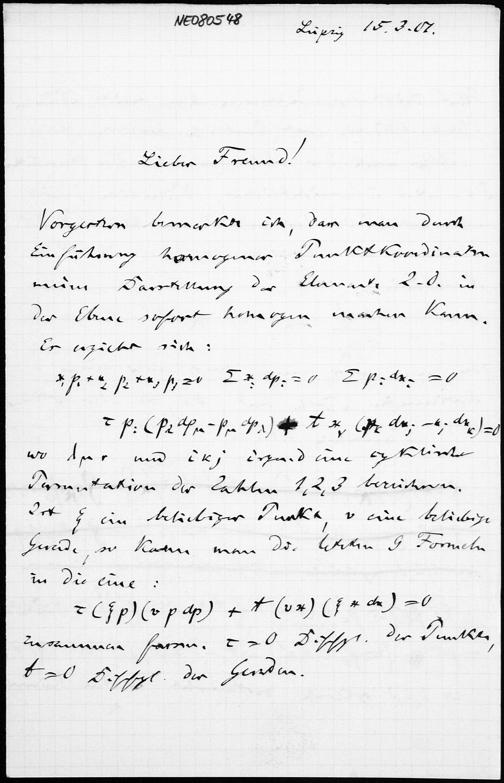 NE080548
Leipzig 15.3.07.
Lieber Freund!
Vorgestern bemerkte ich, dass man durch
Einführung homogener Punktkoordinaten
meine Darstellung der Elemente 2. O. in
der Ebene sofort homogen machen kann.
Es ergiebt sich:
x₁p₁+x₂p₂+x₃p₃=0 Σxᵢdpᵢ=0 Σpᵢdxᵢ=0
wo λμν und ikj irgend eine cyklische
Permutation der Zahlen 1,2,3 bezeichnen.
Ist ξ ein beliebiger Punkt, v eine beliebige
Gerade, so kann man die letzten 9 Formeln
in die eine:
τ(ξp)(vpdp) + t(vx)(ξxdx)=0
zusammen fassen. τ=0 Diffgl. der Punkte,
t=0 Diffgl. der Geraden.